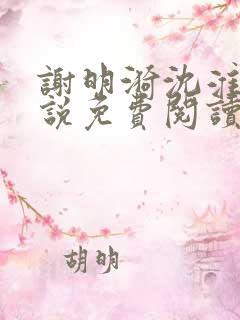 謝明漪沈淮
說免費閱讀
胡明